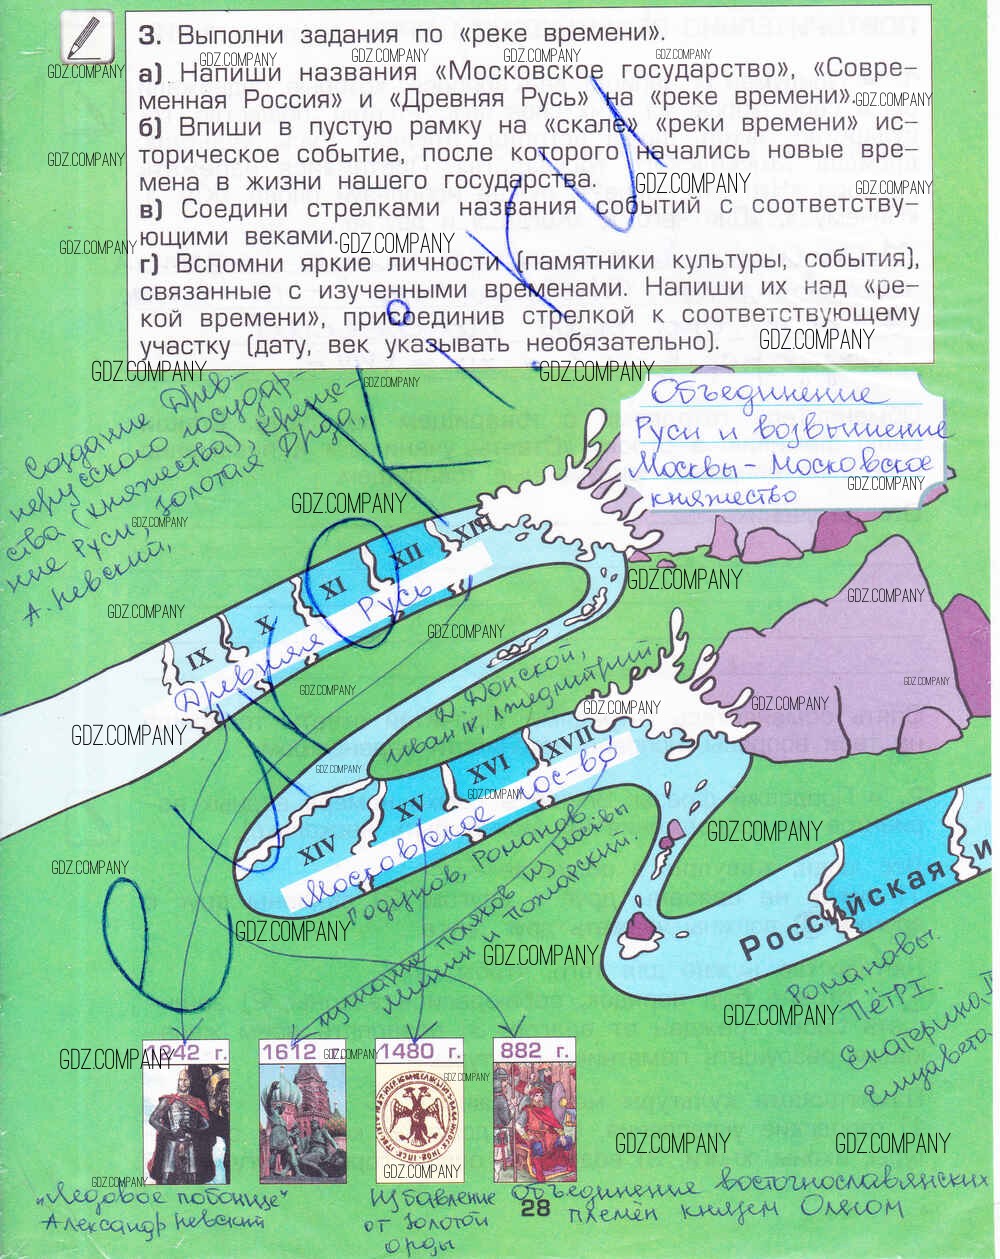 3. Выполни задания по «реке времени».
а) Напиши названия «Московское государство», «Совре-
менная Россия» и «Древняя Русь» на «реке времени».
б) Впиши в пустую рамку на «скале» «реки времени» ис-
торическое событие, после которого начались новые вре-
мена в жизни нашего государства.
в) Соедини стрелками названия событий с соответству-
ющими веками.
г) Вспомни яркие личности (памятники культуры, события),
связанные с изученными временами. Напиши их над «ре-
кой времени», присоединив стрелкой к соответствующему
участку (дату, век указывать необязательно).
GDZ.COMPANY
Объединение
Руси и возвышение
Москвы - Московское
княжество
Создание Древ-
нерусского государ-
ства (княжества), креще-
ние Руси, Золотая Орда
А. Невский,
IX X XI XII XIII
Древняя Русь
Д. Донской,
Иван IV, Лжедмитрий
XIV XV XVI XVII
Московское гос-во
Годунов, Романов.
изгнание поляков из Москвы
Минин и Пожарский.
Российская и
Романовы.
Пётр I.
Екатерина
Елизавета
1242 г. 1612 г. 1480 г. 882 г.
„Ледовое побоище"
Александр Невский
Избавление
от Золотой
орды
Объединение восточнославянских
племён князем Олегом
28